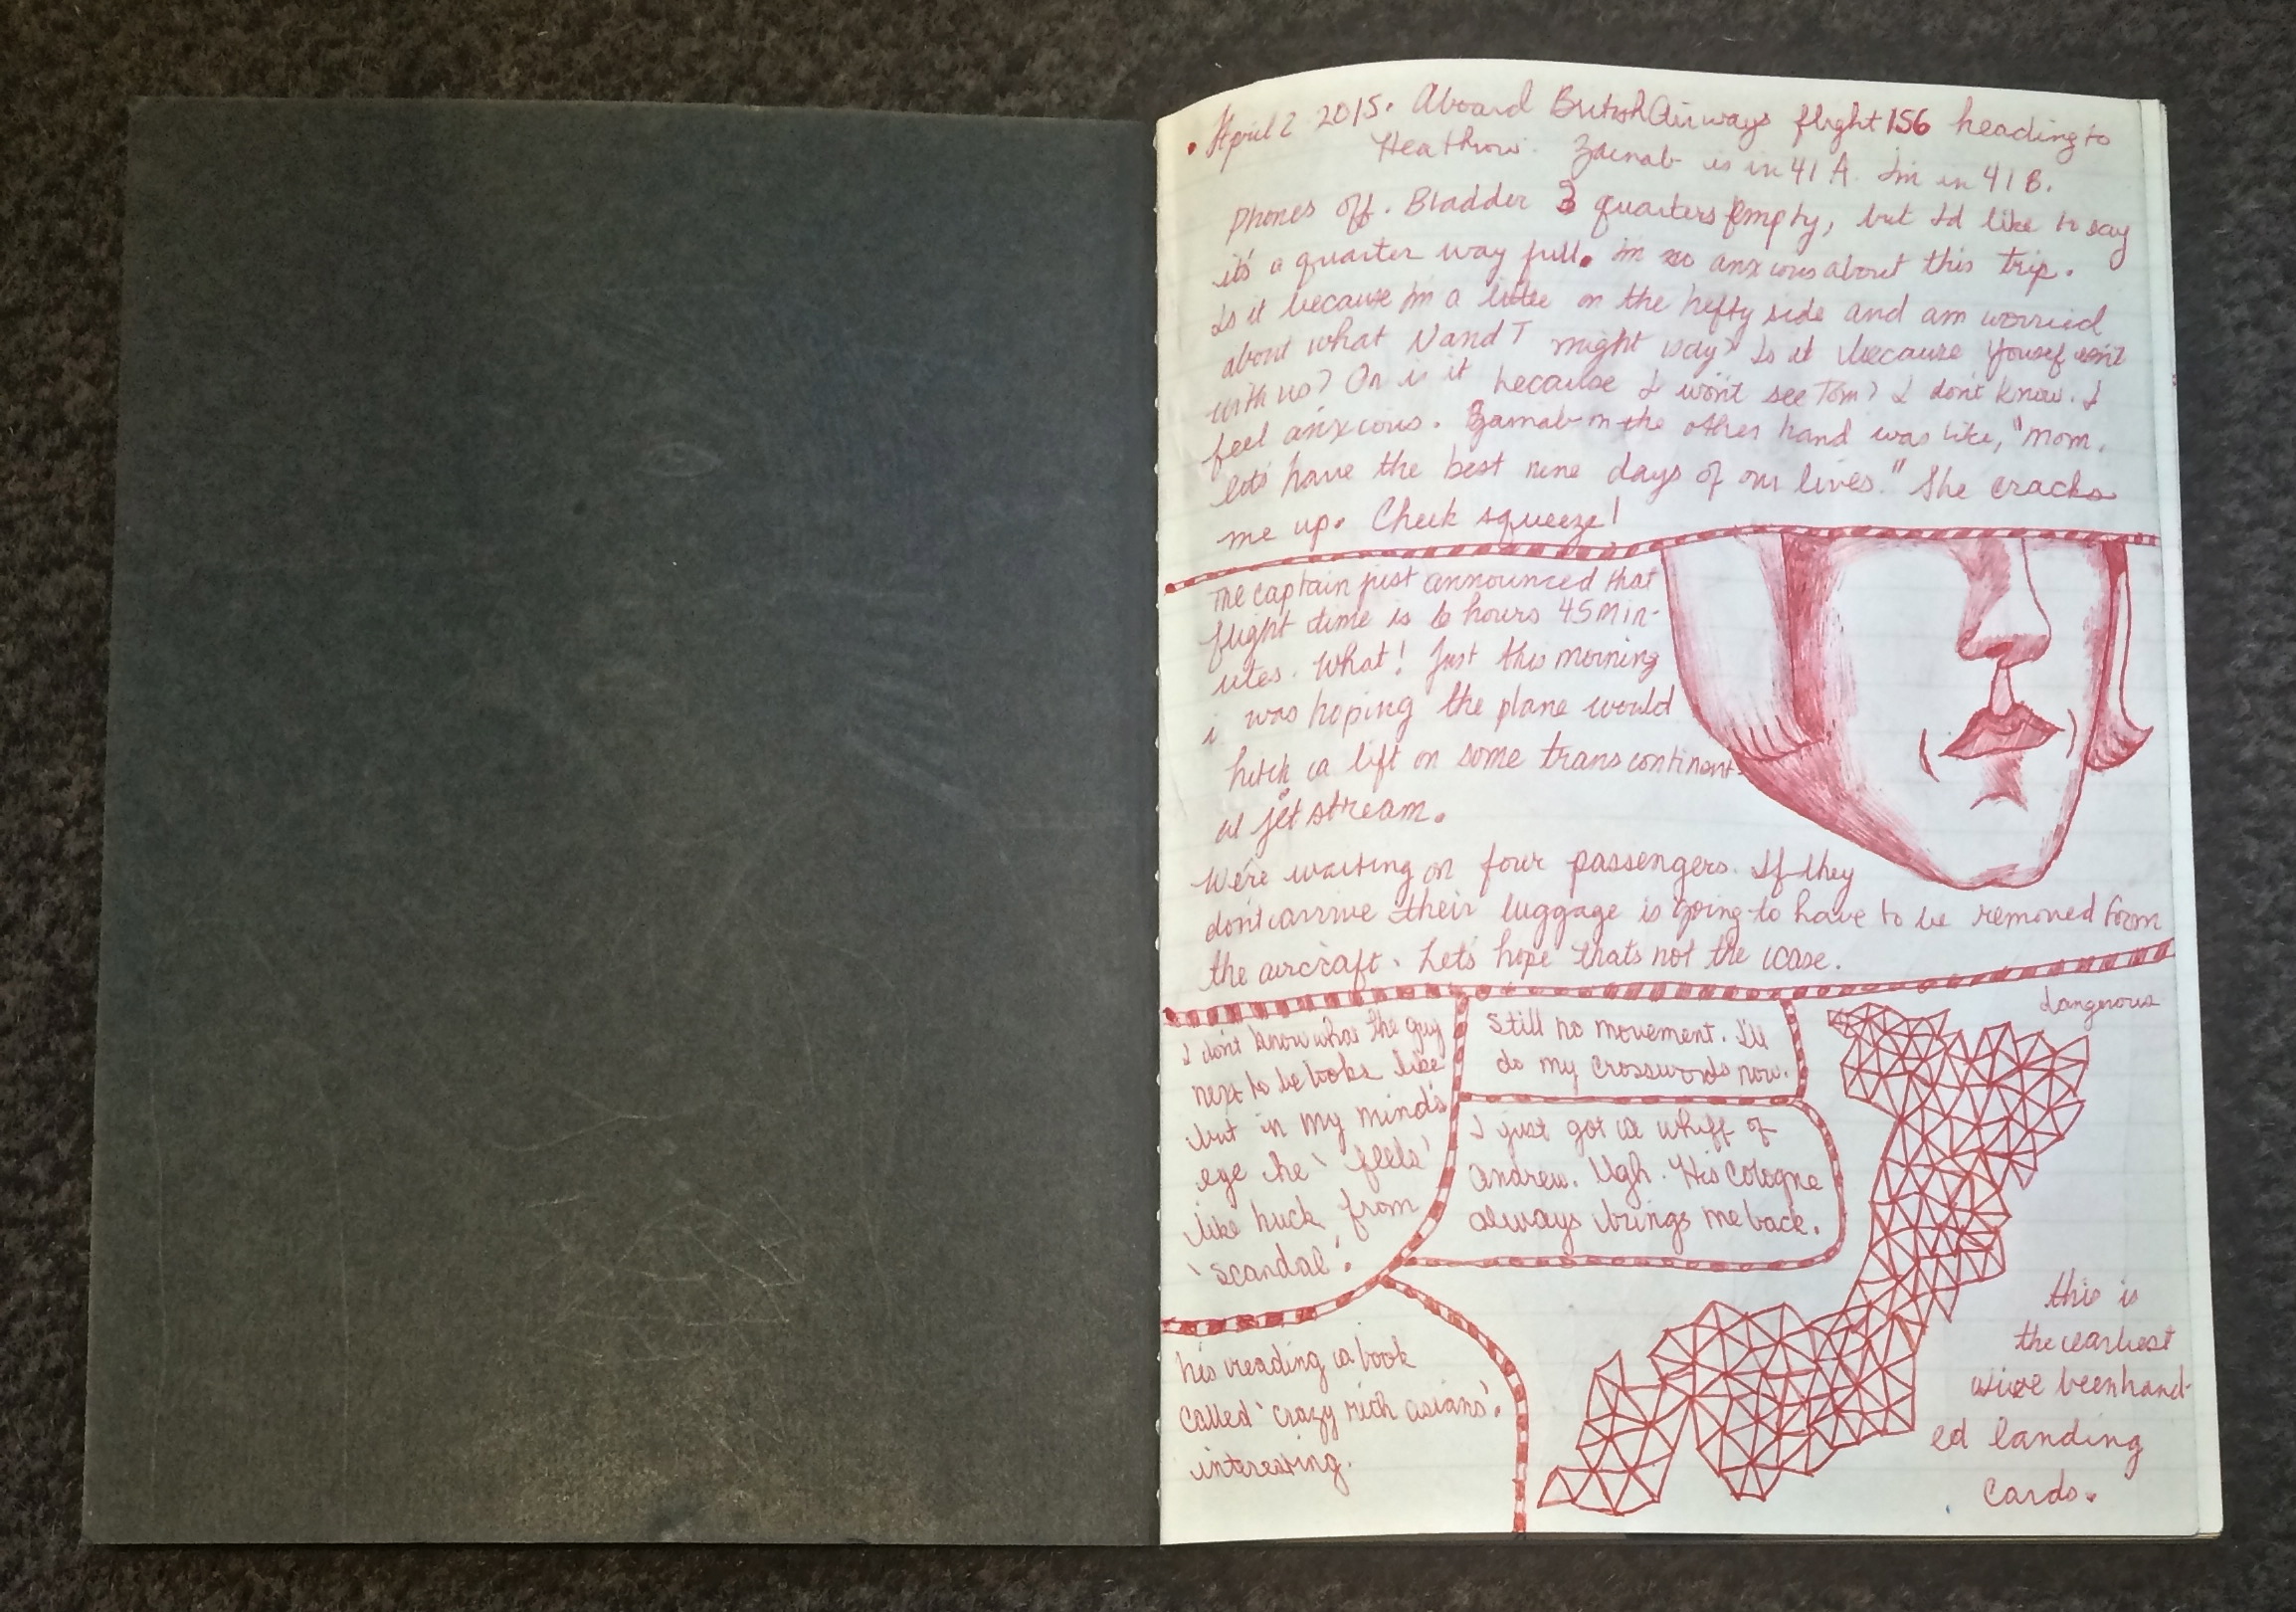 • April 2 2015. Aboard British Airways flight 156 heading to
Heathrow. Zainab is in 41 A. I'm in 41 B.
Phones off. Bladder 3 quarters empty, but I'd like to say
it's a quarter way full. Im so anxious about this trip.
Is it because Im a little on the hefty side and am worried
about what N and T might say? Is it because Yousef isn't
with us? Or is it because I won't see Tom? I don't know. I
feel anxious. Zainab on the other hand was like, "Mom,
let's have the best nine days of our lives." She cracks
me up. Cheek squeeze!
The captain just announced that
flight time is 6 hours 45 min-
utes. What! Just this morning
i was hoping the plane would
hitch a lift on some transcontinent-
al jet stream.
We're waiting on four passengers. If they
don't arrive their luggage is going to have to be removed form
the aircraft. Let's hope that's not the case.
I don't know what the guy
next to be looks like
but in my mind's
eye he 'feels'
like huck from
'scandal'.
Still no movement. I'll
do my crosswords now.
I just got a whiff of
Andrew. Ugh. His Cologne
always brings me back.
his reading a book
called 'crazy rich asians'.
interesting.
dangerous
this is
the earliest
we've been hand-
ed landing
cards.